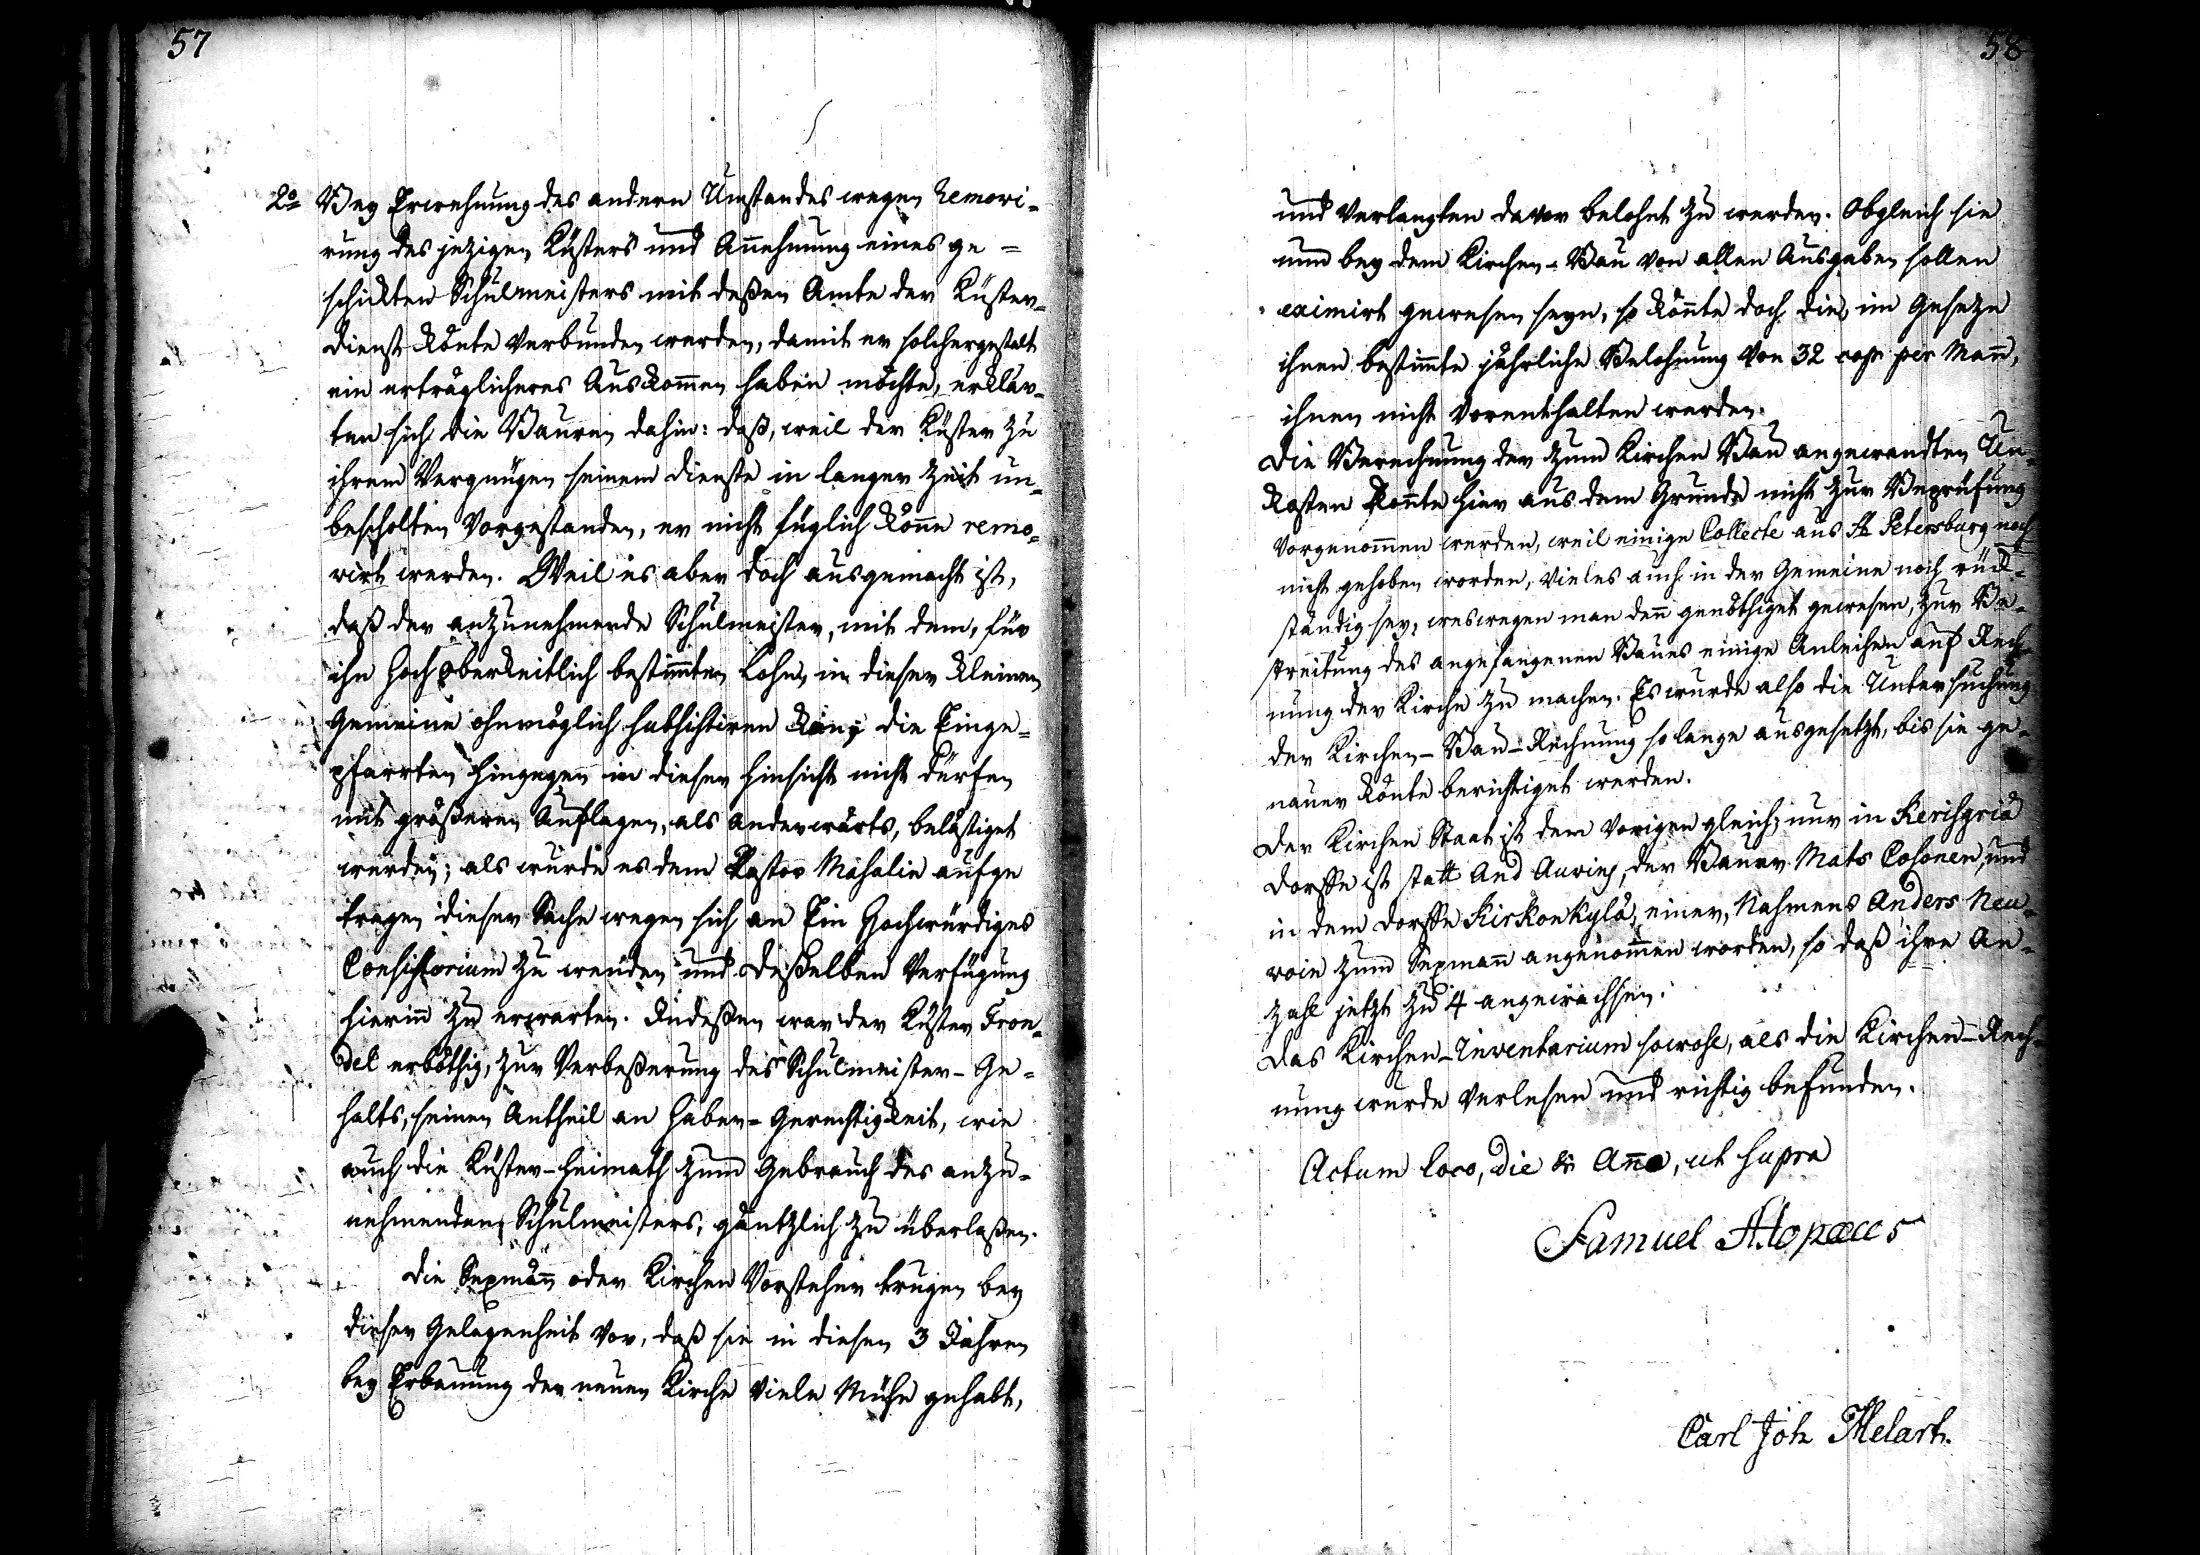 57
2o Bey Erwehnung des andern Umstandes wegen Removi-
rung des jezigen Küsters und Annehmung eines ge=
schickten Schulmeisters mit deßen Amte der Küster-
dienst könte verbunden werden, damit er solchergestalt
ein erträglicheres Auskommen haben möchte, erklär-
ten sich die Bauren dahin: daß, weil der Küster zu
ihrem Vergnügen seinem Dienste in langer Zeit un-
bescholten vorgestanden, er nicht füglich könne remo-
virt werden. Weil es aber doch ausgemacht ist,
daß der anzunehmende Schulmeister, mit dem, für
ihn Hochoberkeitlich bestimmten Lohn, in dieser kleinen
Gemeine ohnmöglich subsistiren kan; die Einge=
pfarrten hingegen in dieser Hinsicht nicht dürfen
mit größeren Auflagen, als anderwärts, belästiget
werden; als wurde es dem Pastor Masalin aufge
tragen dieser Sache wegen sich an Ein Hochwürdiges
Consistorium zu wenden und deßelben Verfügung
hierinn zu erwarten. Indeßen war der Küster Fron-
del erböthig, zur Verbeßerung des Schulmeister-Ge=
halts, seinen Antheil an Haber-Gerechtigkeit, wie
auch die Küster-Heimath zum Gebrauch des anzu=
nehmenden Schulmeisters, gäntzlich zu überlaßen.
Die Sexmänn oder Kirchen Vorsteher trugen bey
dieser Gelegenheit vor, daß sie in diesen 3 Jahren
bey Erbauung der neuen Kirche viele Mühe gehabt,
58
und verlangten davor belohnt zu werden. Obgleich sie
nun bey dem Kirchen-Bau von allen Ausgaben sollen
eximirt gewesen seyn, so könnte doch die, im Geseze
ihnen bestimmte jährliche Belohnung von 32 cop per Mann,
ihnen nicht vorenthalten werden.
Die Berechnung der zum Kirchen Bau angewandten Un-
kosten konnte hier aus dem Grunde nicht zur Beprüfung
vorgenommen werden, weil einige Collecte aus St Petersburg noch
nicht gehoben worden, vieles auch in der Gemeine noch rück-
ständig sey, weswegen man denn genöthiget gewesen, zur Be-
streitung des angefangenen Baues einige Anleihen auf Rech-
nung der Kirche zu machen. Es wurde also die Untersuchung
der Kirchen-Bau-Rechnung so lange ausgesetzt, bis sie ge-
nauer könte berichtiget werden.
Der Kirchen Staat ist dem vorigen gleich; nur in Kerisgriä
Dorffe ist statt And Auvin, der Bauer Mats Cosonen, und
in dem Dorffe Kirkonkylä, einer, Nahmens Anders Neu-
voin zum Sexmann angenommen worden, so daß ihre An-
zahl jetzt zu 4 angewachsen.
Das Kirchen-Inventarium sowohl, als die Kirchen-Rech-
nung wurde verlesen und richtig befunden.
Actum loco, die & Anno, ut supra
Samuel Alopæus
Carl Joh Melart.